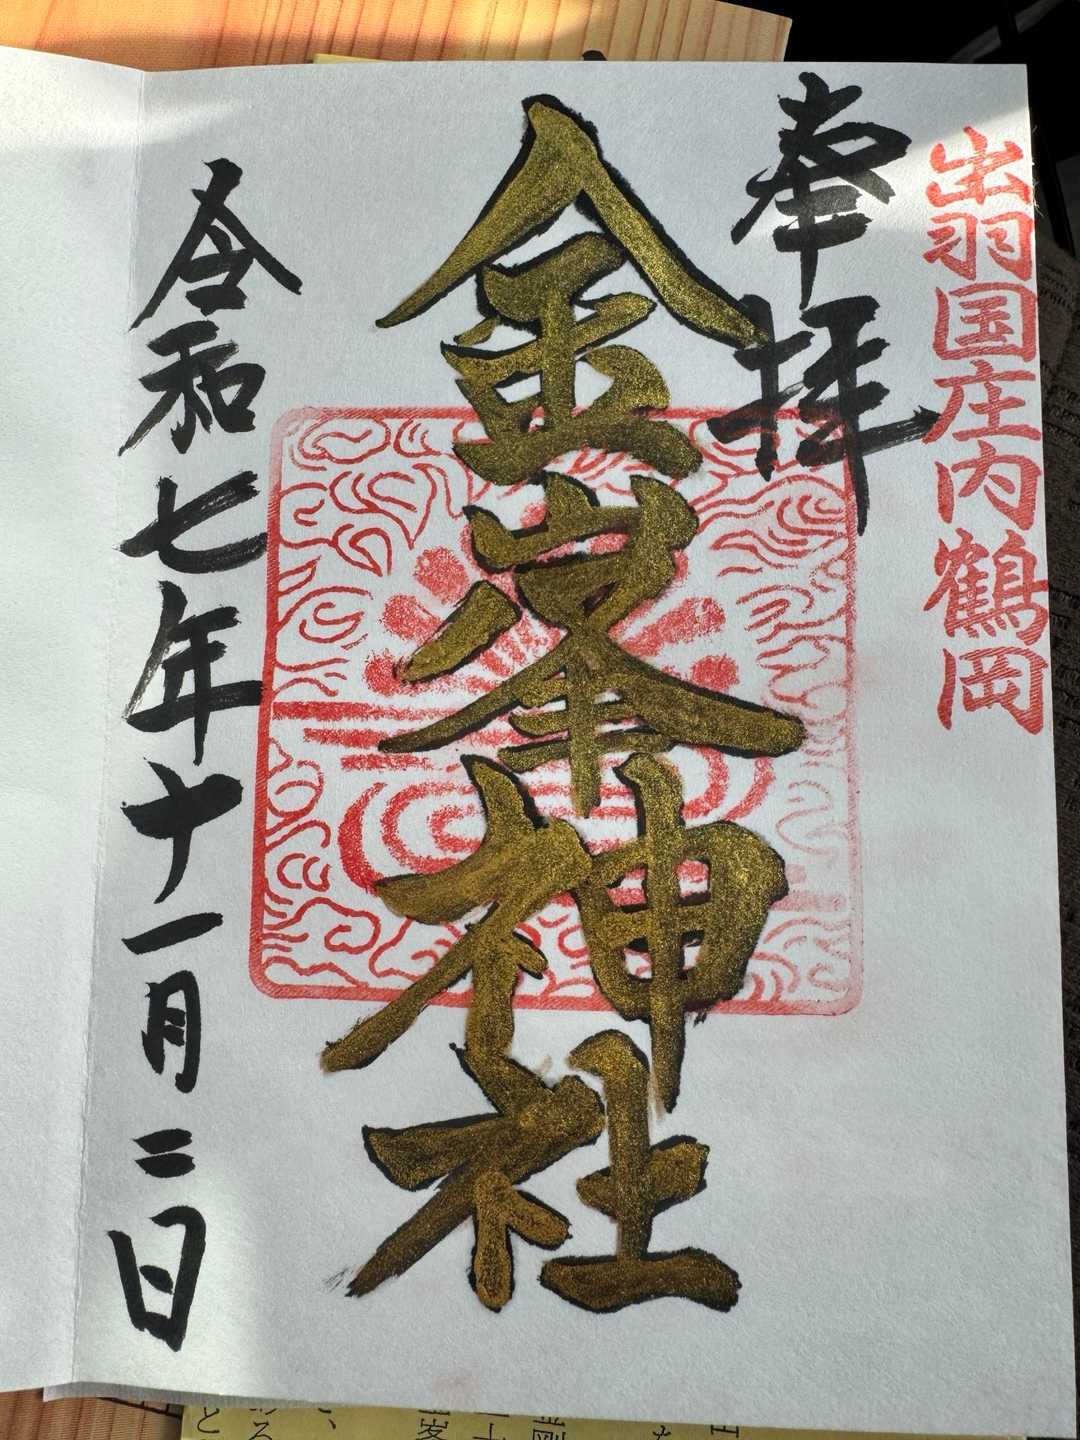 出羽国庄内鶴岡
奉拝
金峯神社
令和七年十一月二日